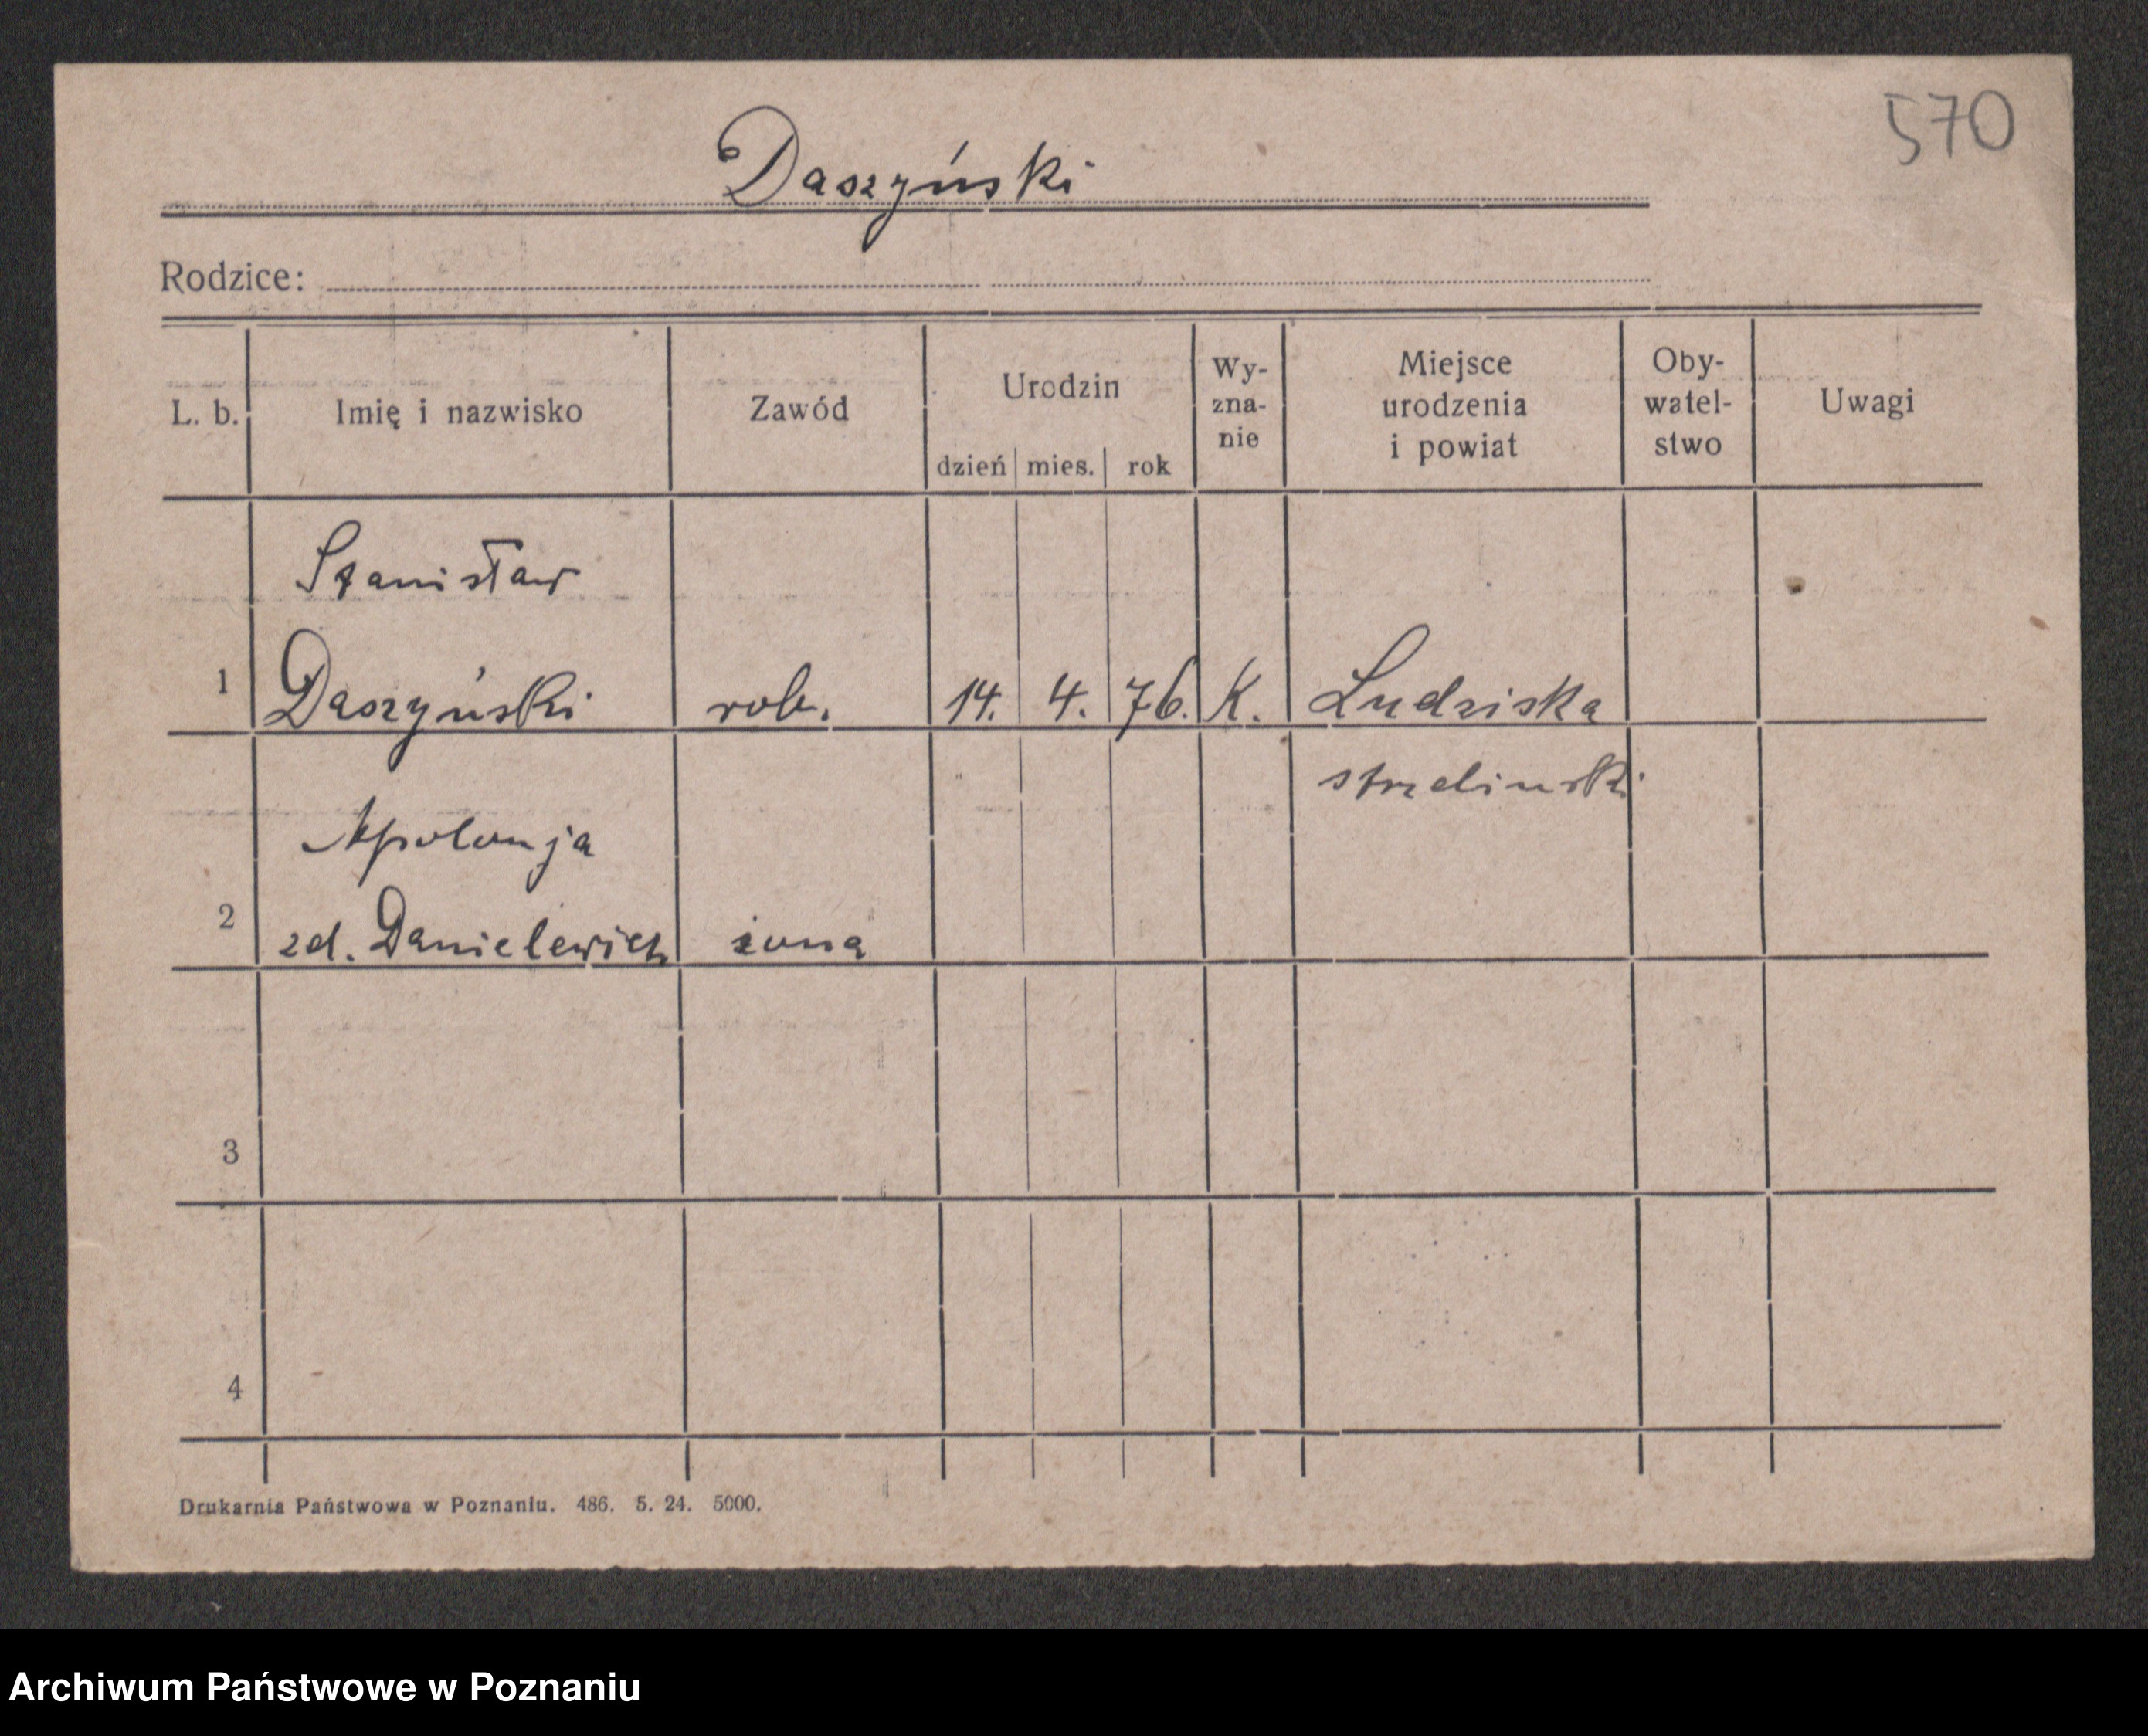 570
Daszyński
Rodzice:
L. b. Imię i nazwisko Zawód Urodzin dzień mies. rok Wy-zna-nie Miejsce urodzenia i powiat Oby-watel-stwo Uwagi
Stanisław
1 Daszyński rob. 14. 4. 76. K. Ludziska
strzeliński
Apolonja
2 zd. Danielewicz żona
3
4
Drukarnia Państwowa w Poznaniu. 486. 5. 24. 5000.
Archiwum Państwowe w Poznaniu